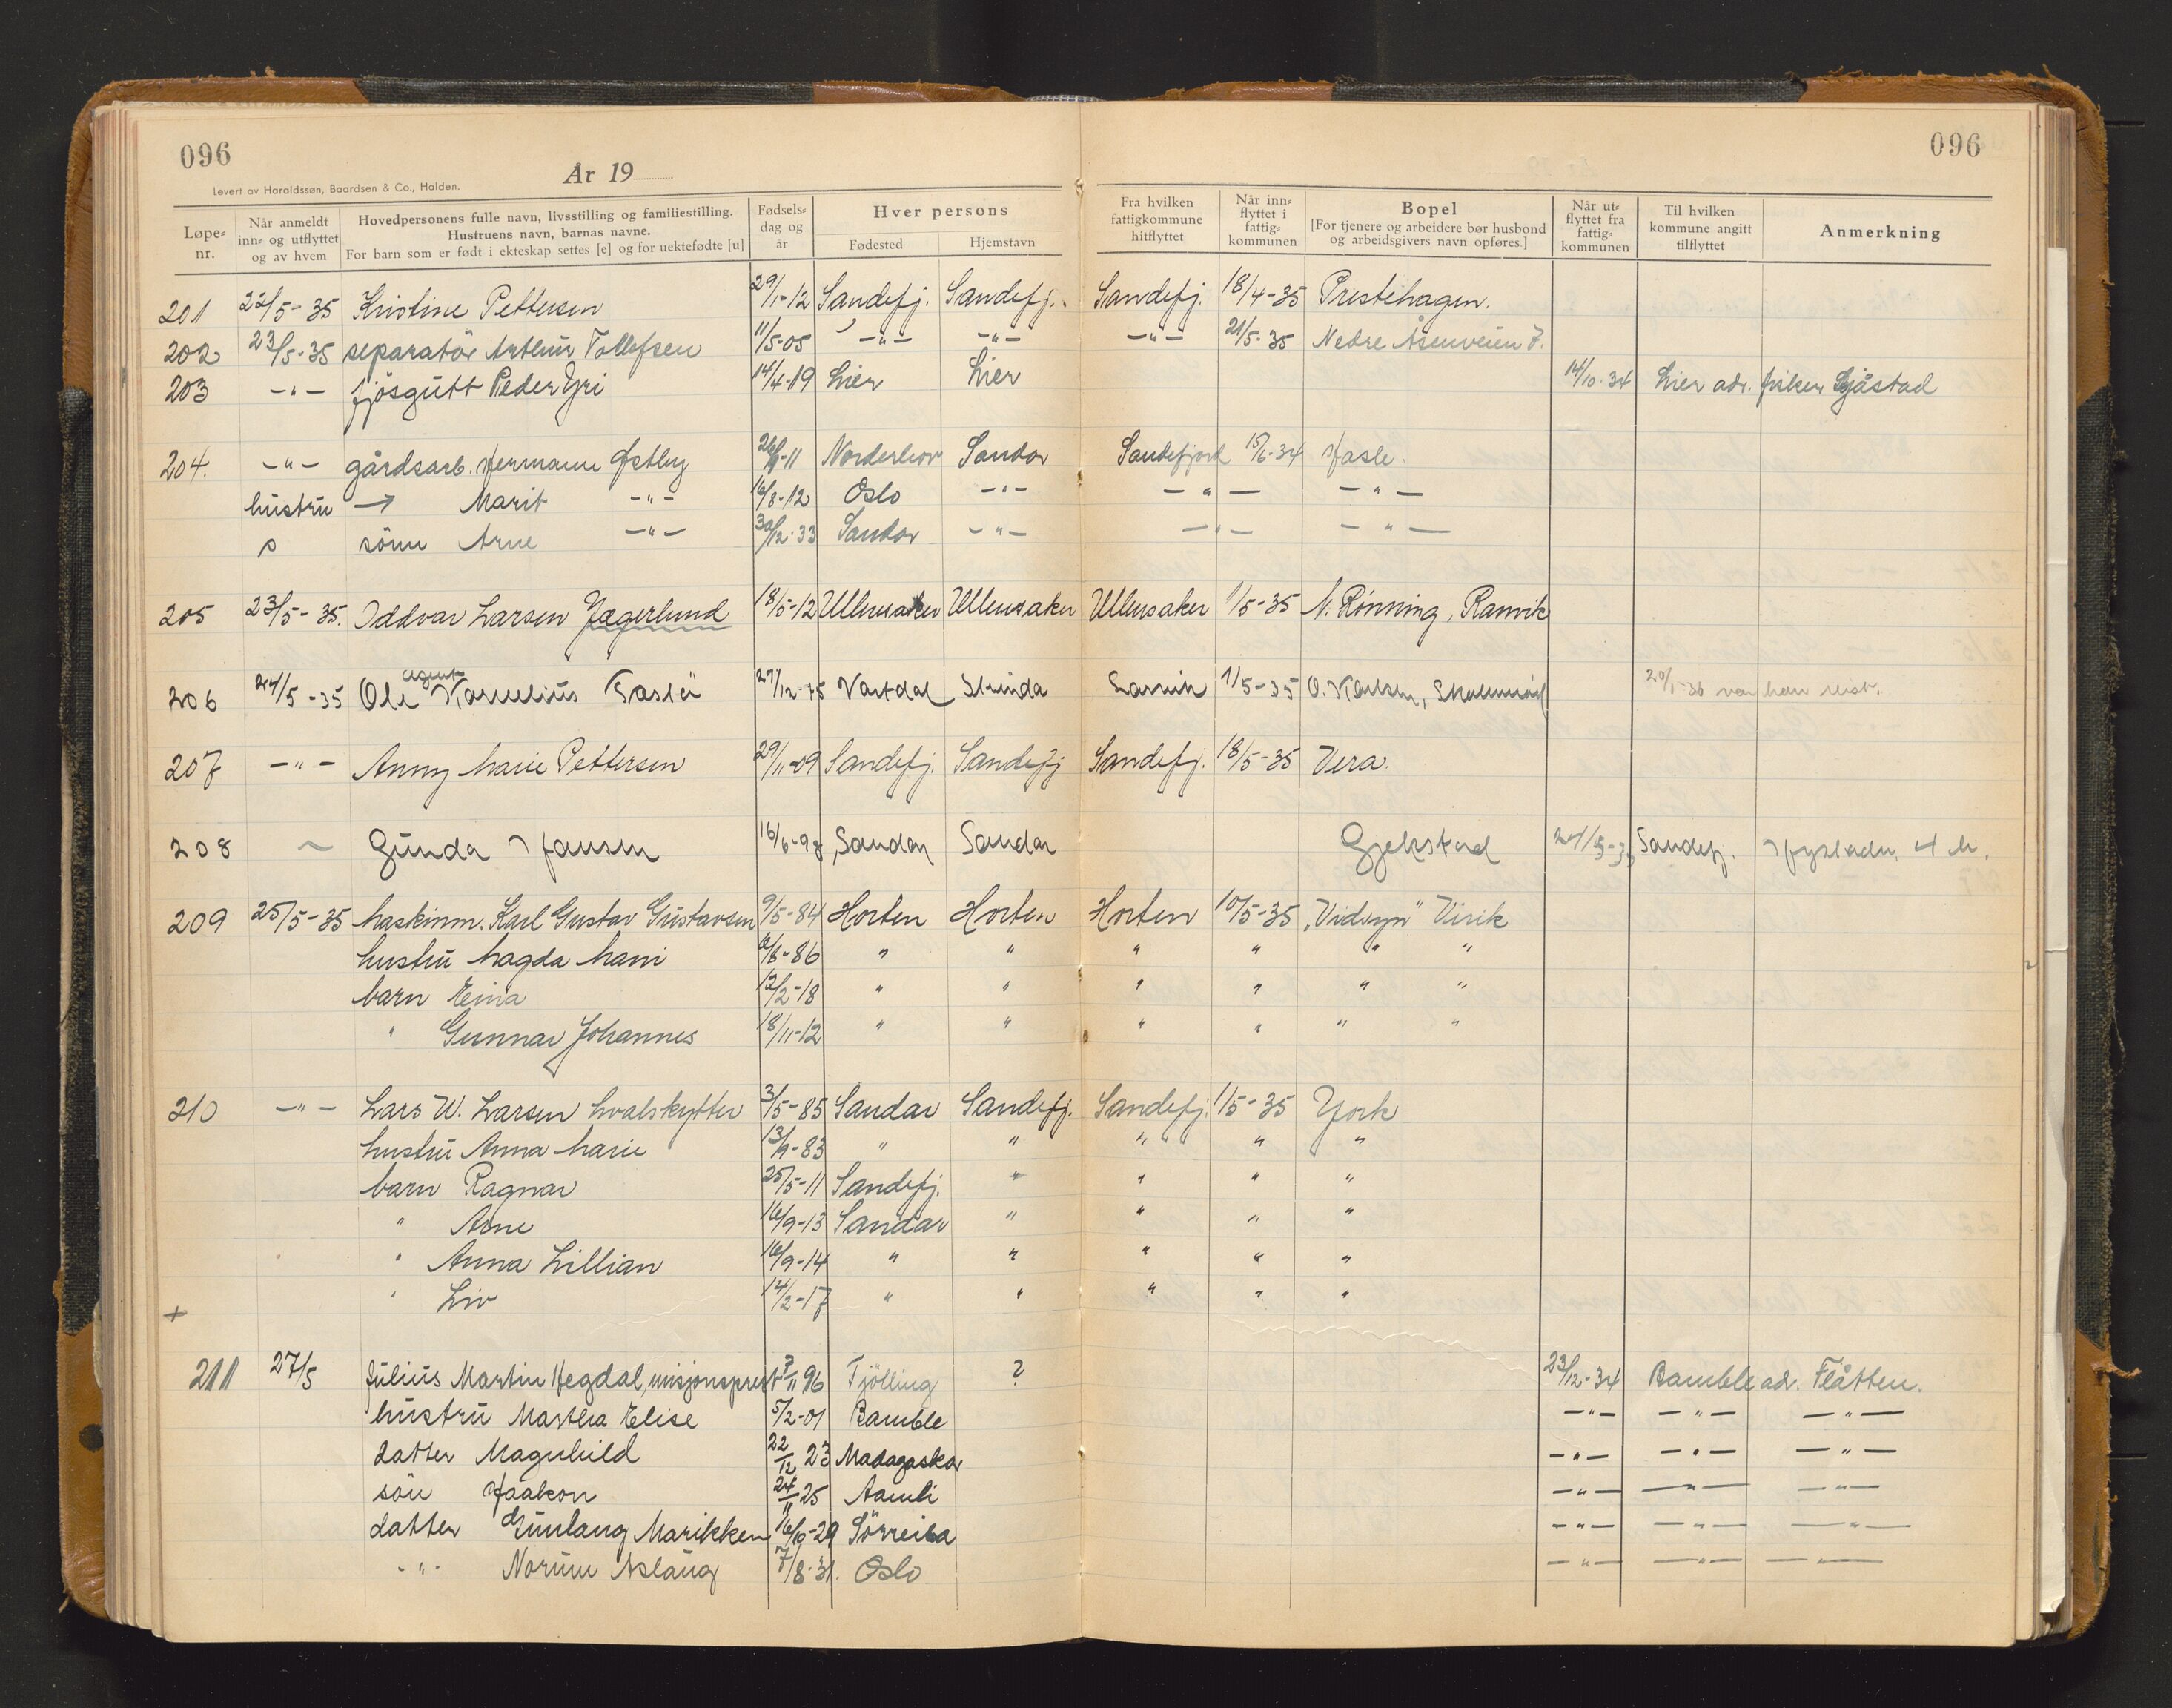 096
096
År 19
Levert av Haraldssøn, Baardsen & Co., Halden.
Løpe-nr. Når anmeldt inn- og utflyttet og av hvem Hovedpersonens fulle navn, livsstilling og familiestilling. Hustruens navn, barnas navne. For barn som er født i ekteskap settes [e] og for uektefødte [u] Fødsels-dag og år Hver persons Fødested Hjemstavn Fra hvilken fattigkommune hitflyttet Når inn-flyttet i fattig-kommunen Bopel [For tjenere og arbeidere bør husbond og arbeidsgivers navn opføres.] Når ut-flyttet fra fattig-kommunen Til hvilken kommune angitt tilflyttet Anmerkning
201 22/5-35 Kristine Pettersen 29/1-12 Sandefj. Sandefj. Sandefj. 18/4-35 Prestehagen.
202 23/5-35 separatör Arthur Tollefsen 11/5-05 -"- -"- -"- 21/5-35 Nedre Åsenveien 7.
203 -"- fjösgutt Peder Gri 14/4-19 Lier Lier 14/10-34 Lier adr. fisker Sjåstad
204. -"- gårdsarb. Hermann Østby 26/9-11 Norderhov Sandar Sandefjord 15/6-34 Hasle.
hustru → Marit -"- 16/8-12 Oslo -"- -"- -"-
sönn Arne -"- 30/12-33 Sandar -"- -"- -"-
205 23/5-35. Oddvar Larsen Jægerlund 18/5-12 Ullensaker Ullensaker Ullensaker 1/5-35 N. Rönning, Ranvik
206 24/5-35 agent Ole Kornelius 27/12-75 Vartdal Strinda Larvik 1/5-35 O. Karlsen, 20/1-36 van han reist.
207 -"- Anny Marie Pettersen 29/11-09 Sandefj. Sandefj Sandefj. 18/5-35 Vera.
208 ~ Gunda Hansen 16/6-98 Sandar Sandar Gjekstad 24/5-35 Sandefj.
209 25/5-35 Maskinm. Karl Gustav Gustavsen 9/5-84 Horten Horten Horten 10/5-35 „Vidsyn" Virik
hustru Magda Mari 6/8-86 " " " " " "
barn Eina 12/2-18 " " " " " "
" Gunnar Johannes 18/11-12 " " " " " "
210 -"- Lars W. Larsen hvalskytter 3/5-85 Sandar Sandefj. Sandefj. 1/5-35 York
hustru Anna Marie 13/9-83 " " " " "
barn Ragnar 25/5-11 Sandefj. " " " "
" Arne 16/9-13 Sandar " " " "
" Anna Lillian 16/9-14 " " " " "
" Liv 14/2-17 " " " " "
+
211 27/5 Julius Martin Hegdal, misjonsprest 3/11 96 Tjölling ? 23/12-34 Bamble adr. Flåtten.
hustru Martha Elise 5/2-01 Bamble -"- -"- -"-
datter Magnhild 22/12 23 Madagaskar -"- -"- -"-
sön Haakon 24/11 25 Aamli -"- -"- -"-
datter Gunlaug Marikken 16/10-29 Sörreisa -"- -"- -"-
-"- Norunn Aslaug 7/8-31. Oslo -"- -"- -"-